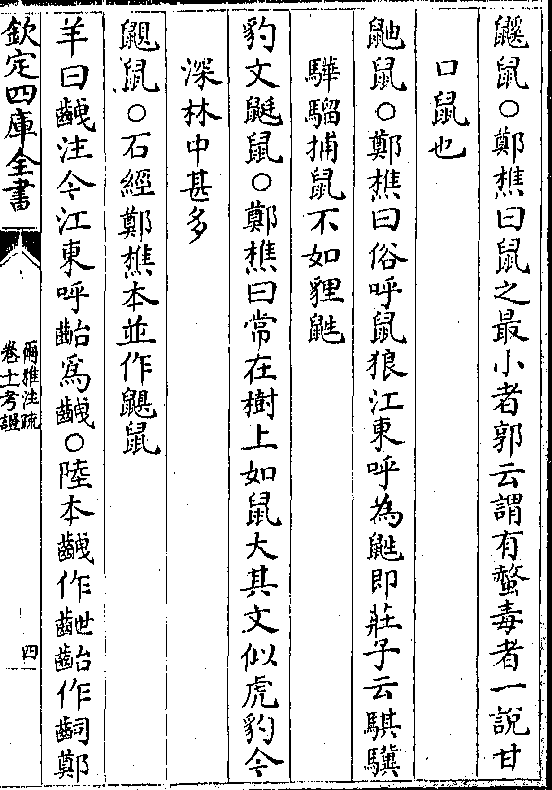 鼷鼠○鄭樵曰鼠之最小者郭云謂有螫毒者一說甘
口鼠也
鼬鼠○鄭樵曰俗呼鼠狼江東呼為鼪即莊子云騏驥
驊騮捕鼠不如貍鼪
豹文鼮鼠○鄭樵曰常在樹上如鼠大其文似虎豹今
深林中甚多
鼰鼠○石經鄭樵本並作鼳鼠
羊曰齥注今江東呼齝為齥○陸本齥作齛齝作𪗪鄭
欽定四庫全書
爾雅注疏
卷十一考證
四